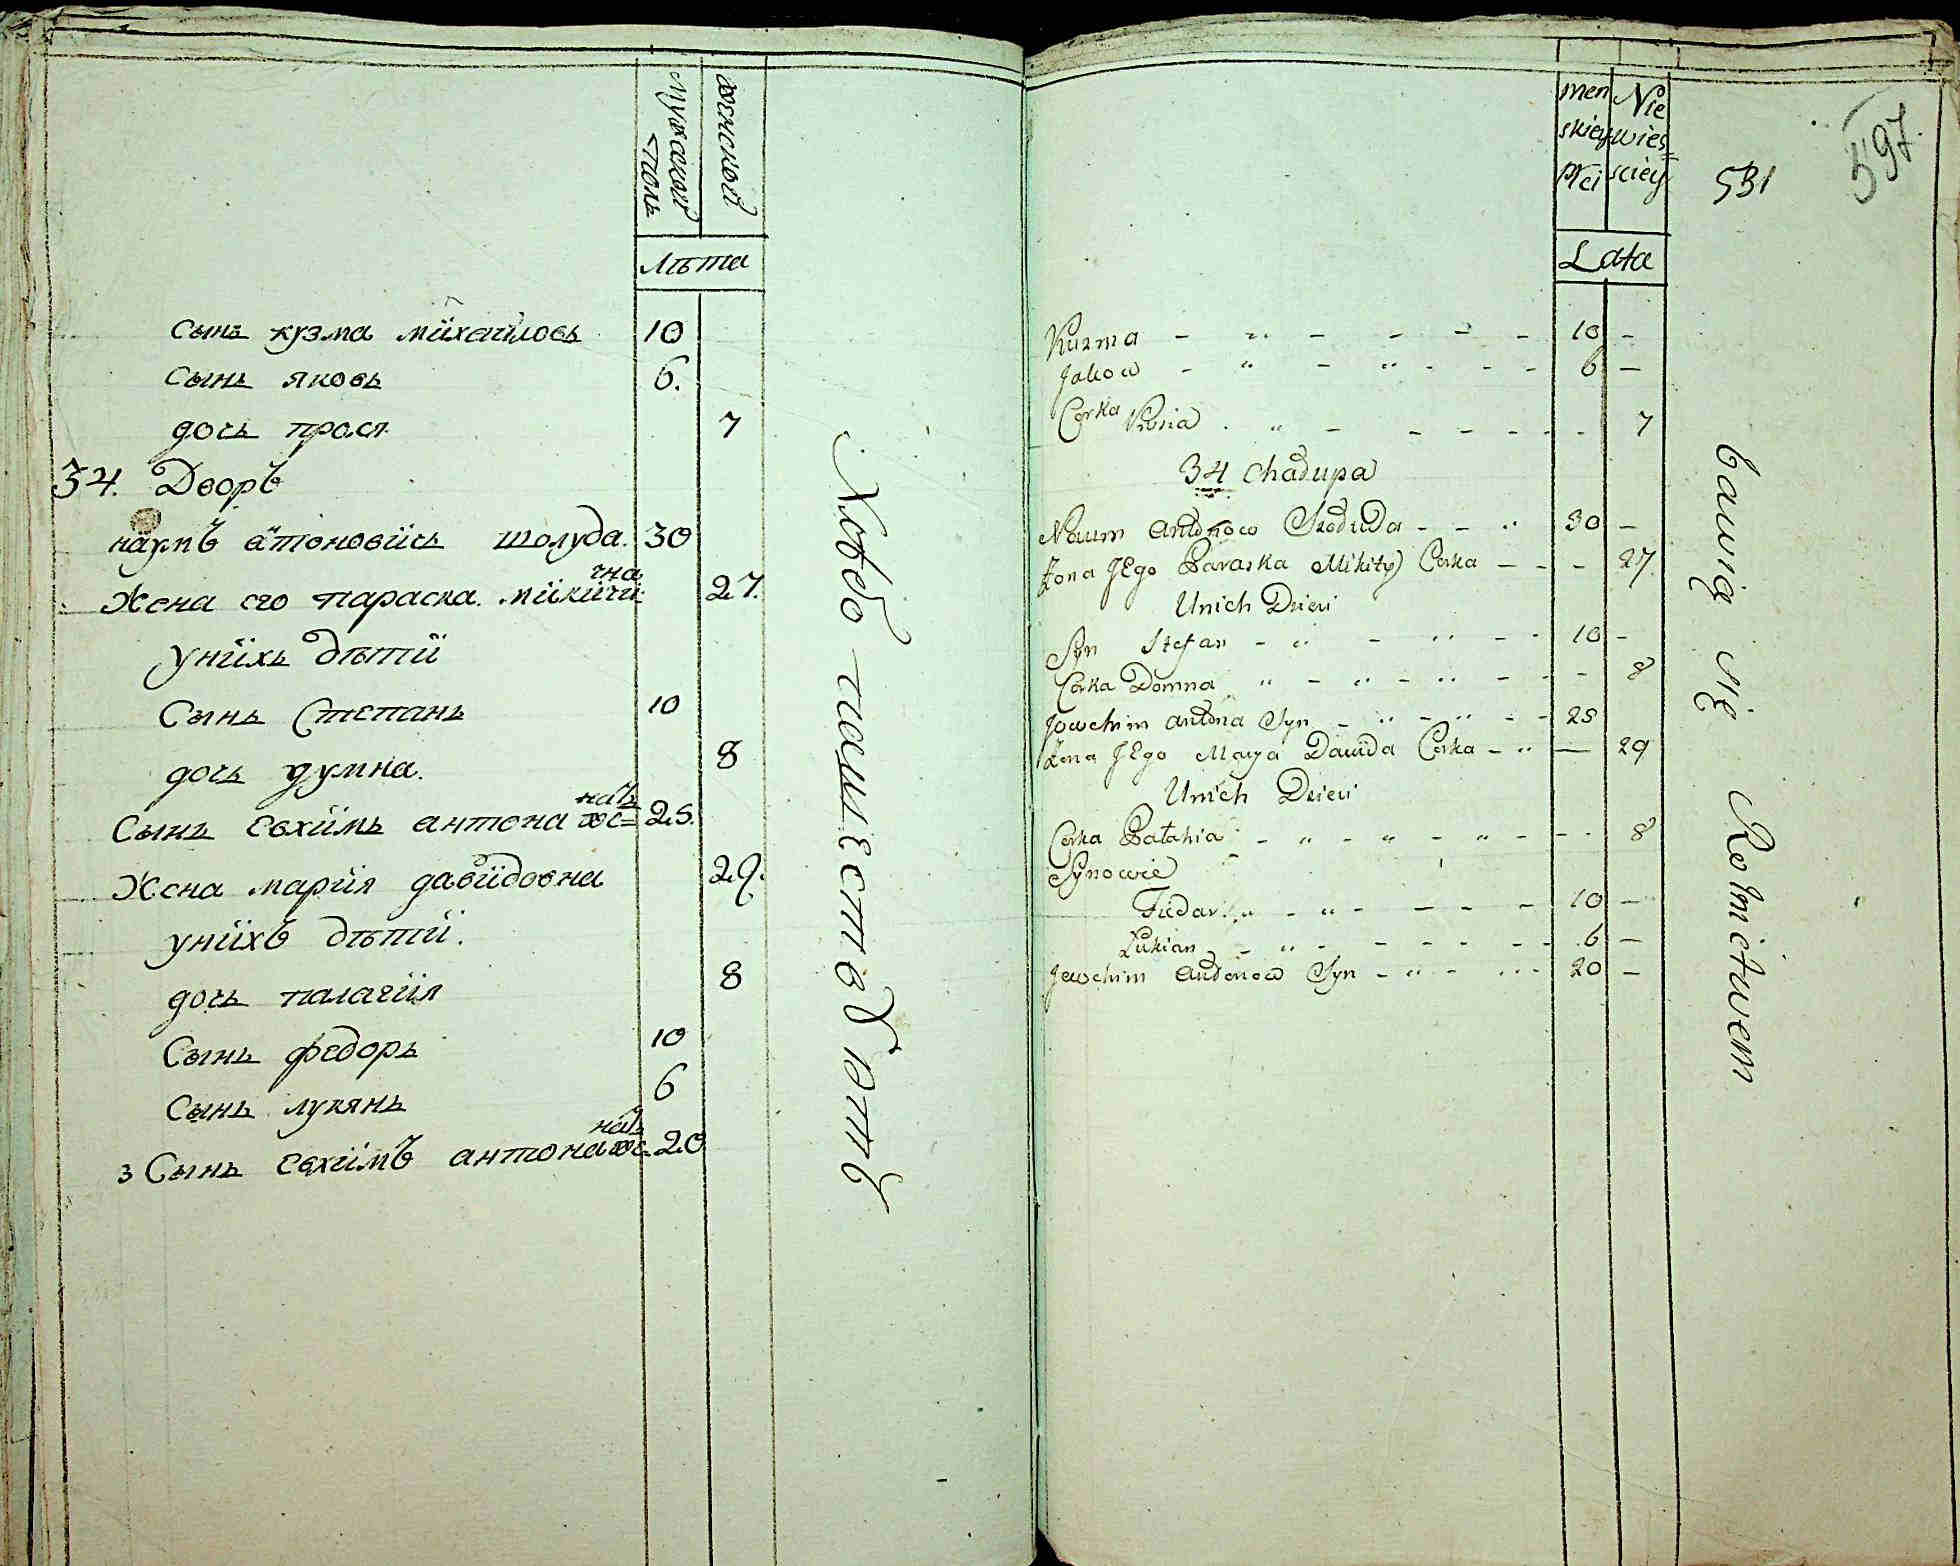 мужескои
полъ
женской
Лѣта
Сынъ кузма мїхаилось 10
Сынъ яковъ 6.
дочь прося 7
34. Дворъ
наумъ а͡тоновичъ шолуда. 30
Жена его параска микитична 27.
унихъ дѣти
Сынъ Степанъ 10
дочь думна. 8
Сынъ евхимъ антона женатъ 25.
Жена мария давидовна 29.
унихъ дѣти.
дочь палагия 8
Сынъ федоръ 10
Сынъ лукянъ 6
3 Сынъ евхимъ антона женатъ 20
Хлѣбопашествуютъ
men
skiey
płci
Nie
wies=
sciey
531
597.
Lata
Kuzma 10 -
Jakow 6 -
Corka Prosia 7
34 Chałupa
Naum Antonow Szołuda 30 -
Żona JEgo Paraska Mikity Corka 27.
Unich Dzieci
Syn Stefan 10 -
Corka Domna 8
Jowchim Antona Syn 25
Żona JEgo Marya Dawida Corka 29
Unich Dzieci
Corka Pałahia 8
Synowie
Fiedar 10 -
Łukian 6 -
Jewchim Antonow Syn 20 -
bawią się Rolnictwem